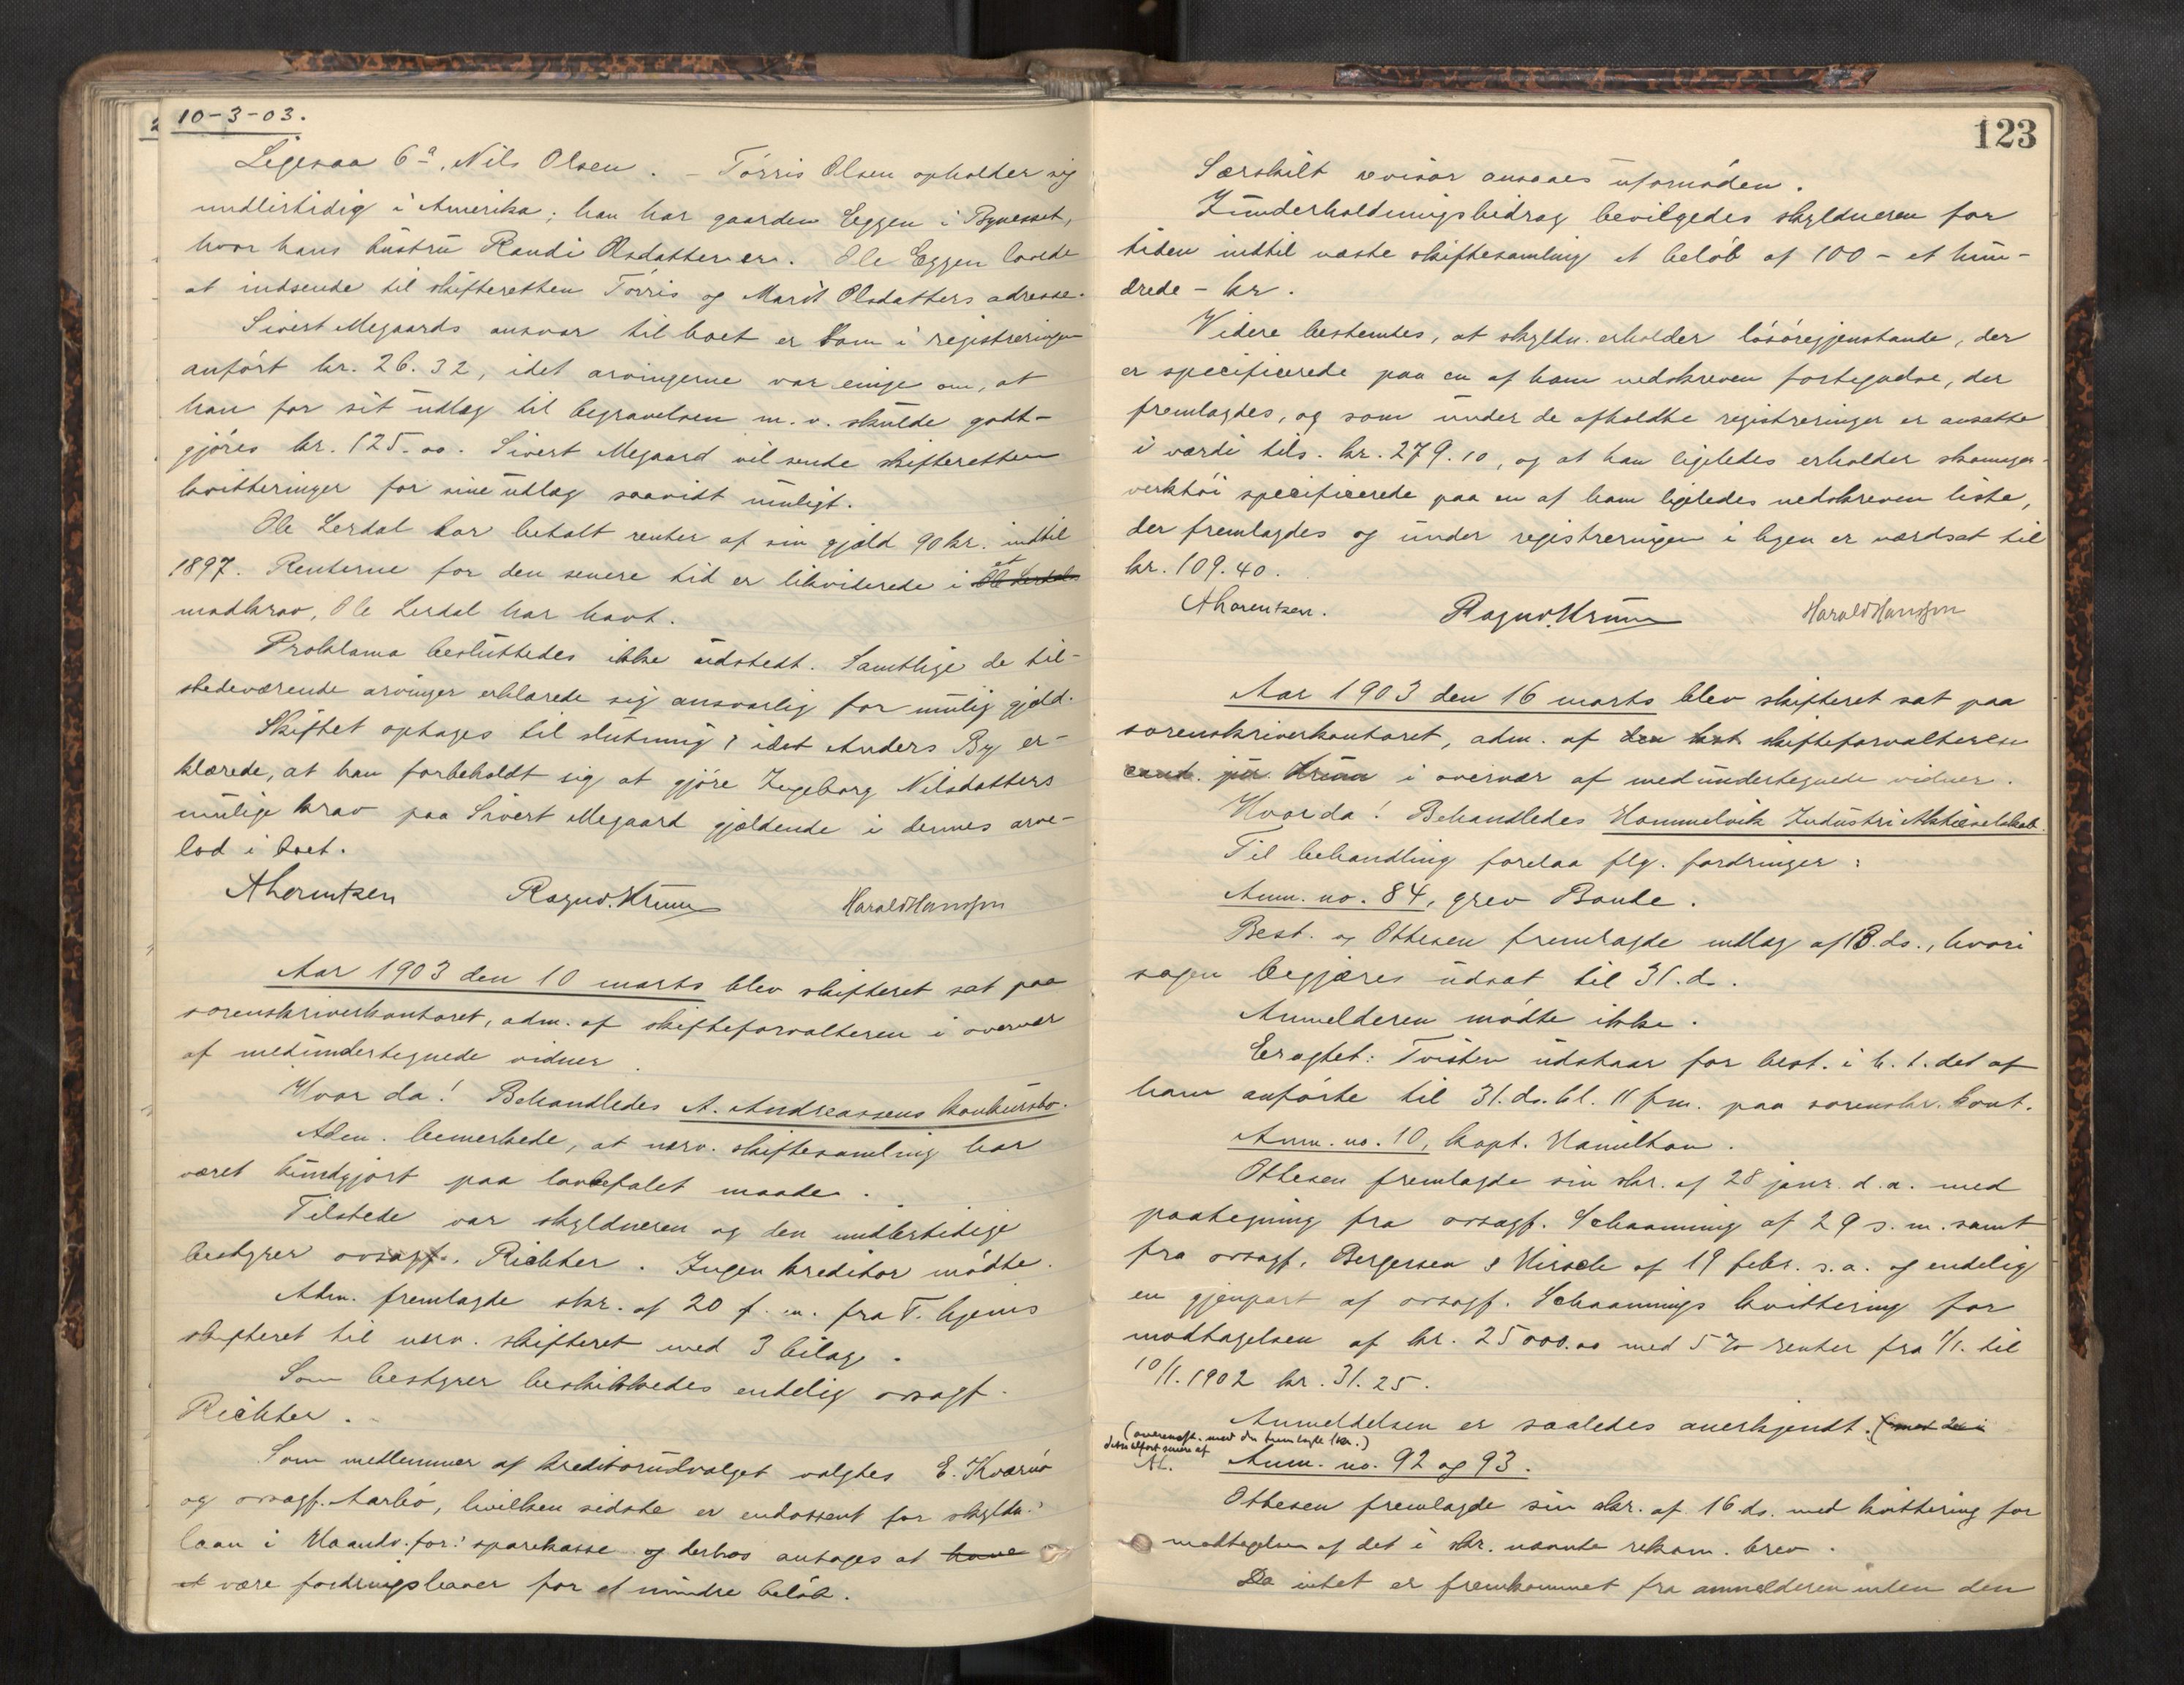 10-3-03.
Ligesaa 6a, Nils Olsen. – Tørris Olsen opholder sig
midlertidig i Amerika; han har gaarden Eggen i Bynesset,
hvor hans hustru Randi Olsdatter er. Ole Eggen lovede
at indsende til skifteretten Tørris og Marit Olsdatters adresse.
Sivert Megaards ansvar til boet er som i registreringen
anført kr. 26.32, idet arvingerne var enige om, at
han for sit udlæg til begravelsen m.v. skulde godt-
gjøres kr. 125.00. Sivert Megaard vil sende skifteretten
kvitteringer for sine udlæg saavidt muligt.
Ole Lerdal har betalt renter af sin gjæld 90 kr. indtil
1897. Renterne for den senere tid er likviderede i et Ole Lerdals
modkrav, Ole Lerdal har havt.
Proklama besluttedes ikke udstedt. Samtlige de til-
stedeværende arvinger erklærede sig ansvarlig for mulig gjeld.
Skiftet optages til slutning, idet Anders By er-
klærede, at han forbeholdt sig at gjøre Ingeborg Nilsdatters
mulige krav paa Sivert Megaard gjældende i dennes arve-
lod i boet.
A Lorentzen Ragnv. Krum Harald Hansen
Aar 1903 den 10 marts blev skifteret sat paa
sorenskriverkontoret, adm. af skifteforvalteren i overvær
af medundertegnede vidner.
Hvorda! Behandledes A. Andreassens konkursbo.
Adm. bemerkede, at nærv. skiftesamling har
været kundgjort paa lovbefalet maade.
Tilstede var skyldneren og den midlertidige
bestyrer ovrsagf. Richter. Ingen kreditor mødte.
Adm. fremlagde skr. af 20 f.m. fra T.hjems
skifteret til nærv. skifteret med 3 bilage.
Som bestyrer beskikkedes endelig ovrsagf.
Richter.
Som medlemmer af kreditorudvalget valgtes E. Kværnø
og ovrsagf. Aarbø, hvilken sidste er endossent for skyldn.s
laan i Haandv.for.s sparekasse og derhos antages at have
at være fordringshaver for et mindre beløb.
123
Særskilt revisor ansaaes ufornøden.
I underholdningsbidrag bevilgedes skyldneren for
tiden indtil næste skiftesamling et beløb af 100 – et hun-
drede – kr.
Videre bestemtes, at skyldn. erholder løsøregjenstande, der
er specificerede paa en af ham nedskreven fortegnelse, der
fremlagdes, og som under de afholdte registreringer er ansatte
i værdi tils. kr. 279.10, og at han ligeledes erholder skomager-
verktøi specificerede paa en af ham ligeledes nedskreven liste,
der fremlagdes og under registreringen i byen er værdsat til
kr. 109.40.
A Lorentzen. Ragnv. Krum Harald Hansen
Aar 1903 den 16 marts blev skifteret sat paa
sorenskriverkontoret, adm. af den kst. skifteforvalteren
cand. jur. Krum i overvær af medundertegnede vidner.
Hvorda! Behandledes Hommelvik Industri Aktieselskab.
Til behandling forelaa flg. fordringer:
Anm. no. 84, grev Bonde.
Best. og Ottesen fremlagde indlæg af 13.ds., hvori
sagen begjæres udsat til 31.ds.
Anmelderen mødte ikke.
Eragtet: Tvisten udstaar for best. i h.t. det af
ham anførte til 31.ds. kl. 11 fm. paa sorenskr. kont.
Anm. no. 10, kapt. Hamilton.
Ottesen fremlagde sin skr. af 28 janr. d.a. med
paategning fra ovrsagf. Schaanning af 29 s.m. samt
fra ovrsagf. Bergersen & Hirsch af 19 febr. s.a. og endelig
en gjenpart af ovrsagf. Schaannings kvittering for
modtagelsen af kr. 25000.00 med 5 % renter fra 1/1. til
10/1. 1902 kr. 31.25.
Anmeldelsen er saaledes anerkjendt. (med den i
(overensst. med den fremlagte skr.)
dette tilført senere af
AL.
Anm. no. 92 og 93.
Ottesen fremlagde sin skr. af 16.ds. med kvittering for
modtagelsen af det i skr. nævnte rekom. brev.
Da intet er fremkommet fra anmelderen inden den